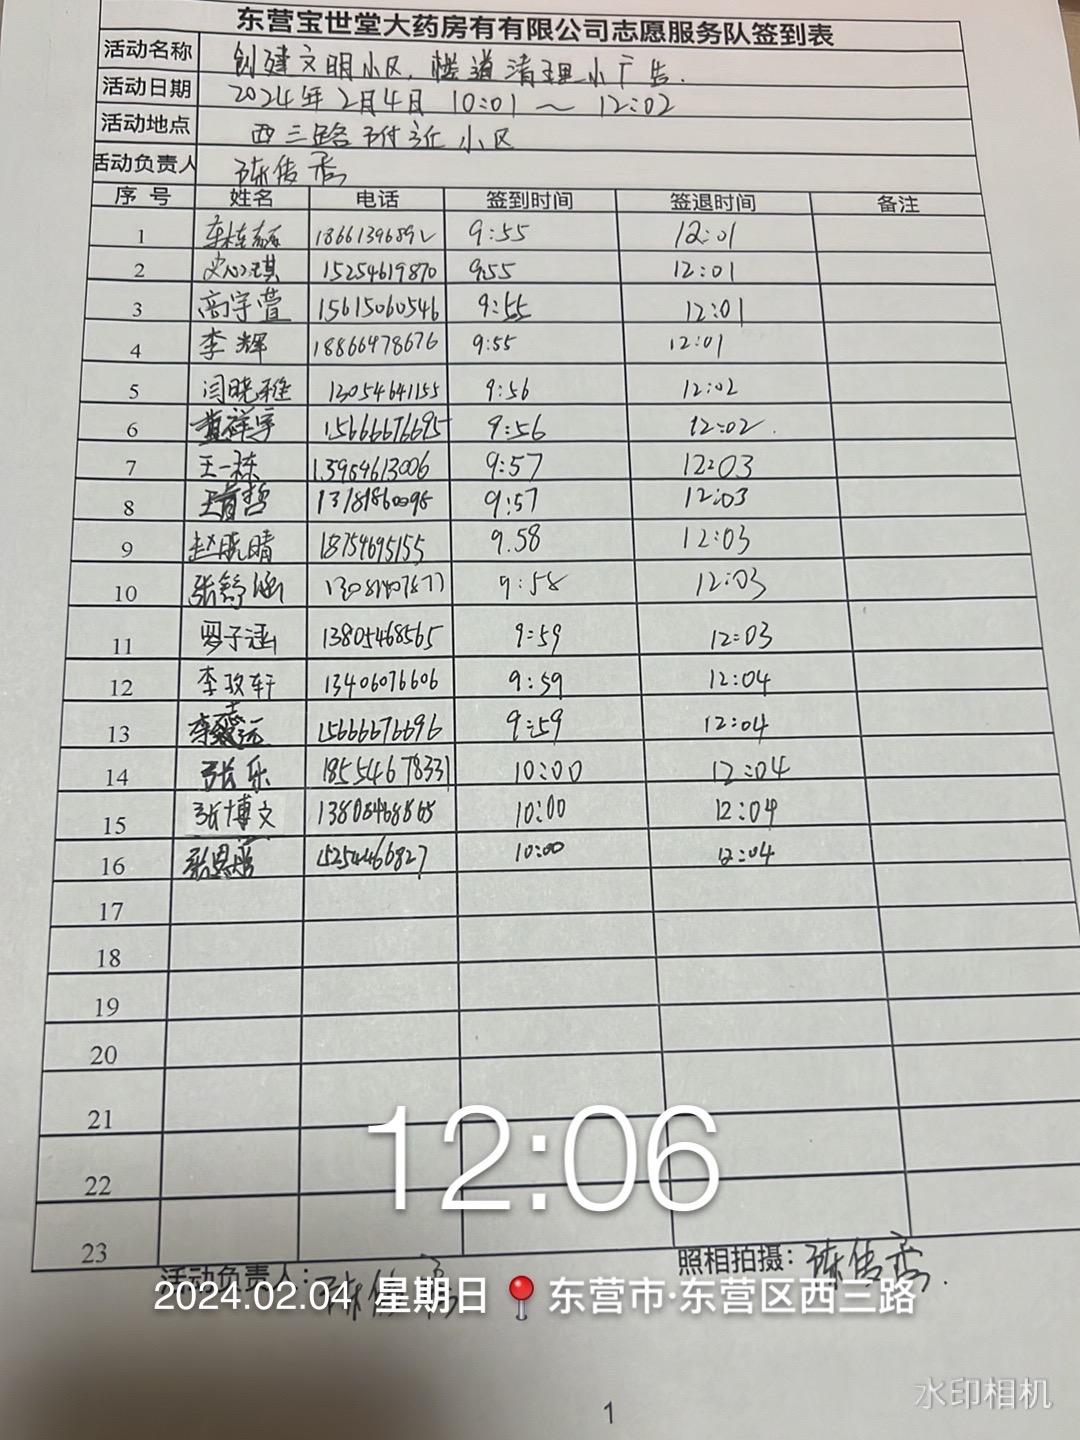 东营宝世堂大药房有有限公司志愿服务队签到表
活动名称 创建文明小区,楼道清理小广告.
活动日期 2024年2月4日 10:01～12:02
活动地点 西三路附近小区
活动负责人 陈传香
序号 姓名 电话 签到时间 签退时间 备注
1 18661396892 9:55 12:01
2 史心琪 15254619870 9:55 12:01
3 高宇萱 15615060546 9:55 12:01
4 李辉 18866478676 9:55 12:01
5 闫晓雅 13054641155 9:56 12:02
6 黄祥宇 15666676695 9:56 12:02.
7 王一栋 13954613006 9:57 12:03
8 9:57 12:03
9 赵晓晴 18754695155 9.58 12:03
10 张舒涵 9:58 12:03
11 罗子涵 13805468565 9:59 12:03
12 李玫轩 13406076606 9:59 12:04
13 15666676696 9:59 12:04
14 张乐 18554678331 10:00 12:04
15 张博文 13805468565 10:00 12:04
16 15254466827 10:00 12:04
17
18
19
20
21
22
23
12:06
活动负责人: 陈传香 照相拍摄: 陈传香.
2024.02.04 星期日 东营市·东营区西三路
水印相机
1